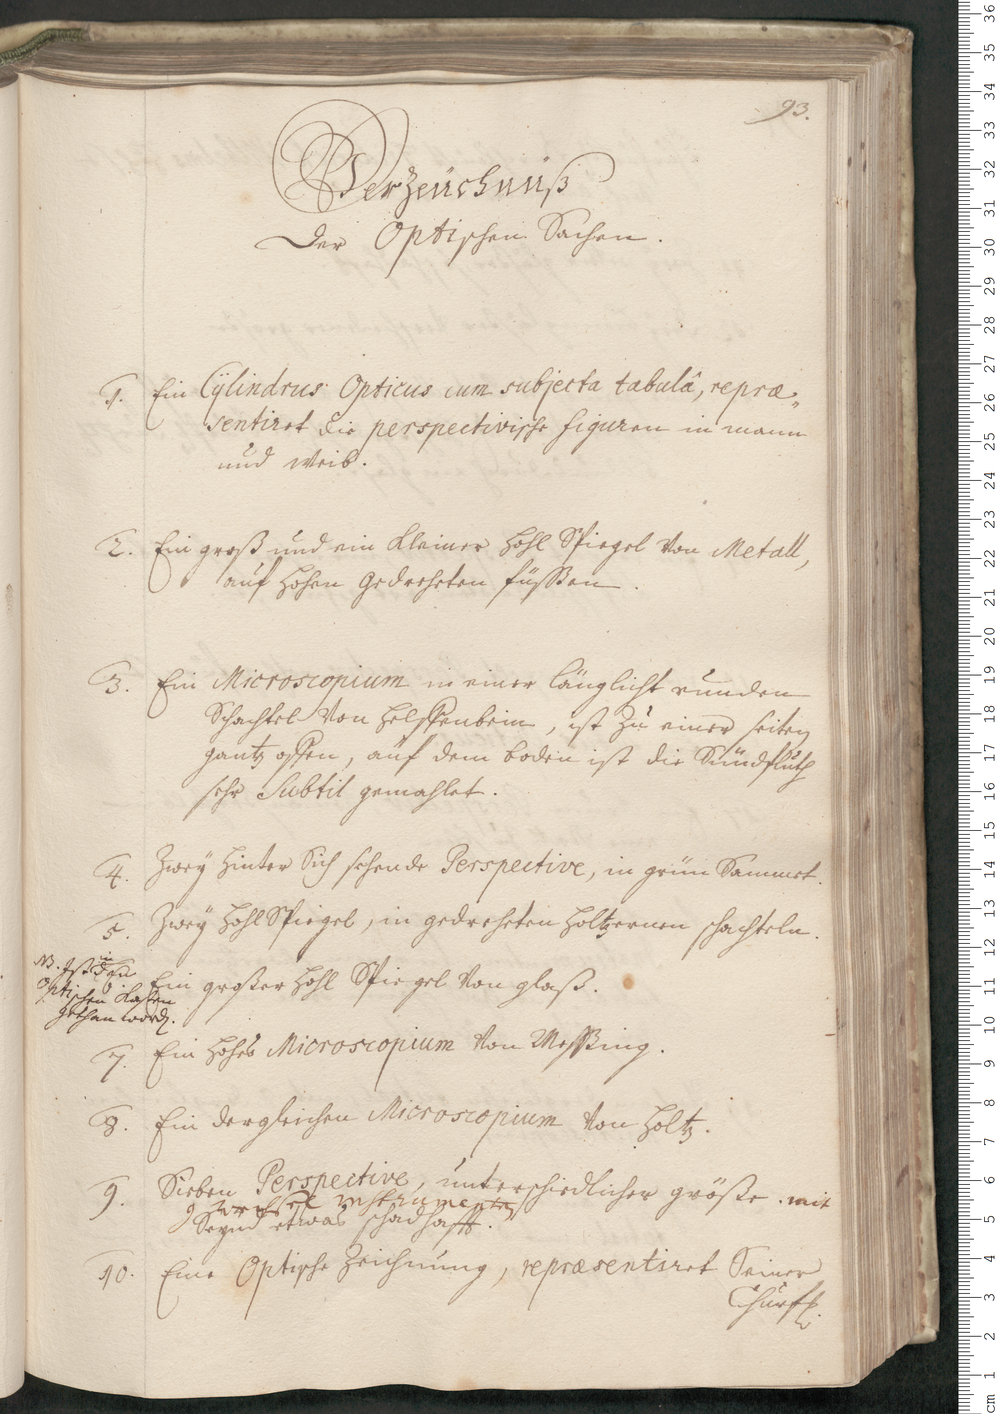 93.
Verzeüchnüß
Der Optischen Sachen.
1. Ein Cÿlindrus Opticus cum subjecta tabulâ, repræ„
sentiret die perspectivische figuren in mann
und Weib.
2. Ein groß und ein kleiner hohl Spiegel von Metall,
auf hohen gedreheten füssen.
3. Ein Microscopium in einer länglicht runden
Schachtel von helffenbein, ist zu einer seiten
gantz offen, auf dem boden ist die Sündfluth
sehr Subtil gemahlet.
4. Zweÿ hinter Sich sehende Perspective, in grün Sammet.
5. Zweÿ hohl Spiegel, in gedreheten holtzernen schachteln.
NB. Ist in den
Optischen Kasten
gethan word.
Ein großer hohl Spiegel von glaß.
7. Ein hohes Microscopium von Messing.
8. Ein dergleichen Microscopium von holtz.
9. Sieben Perspective, unterschiedlicher größe. mit
Seynd etwas schadhafft.
10. Eine Optische Zeichnung, repræsentiret Seiner
Churfl.